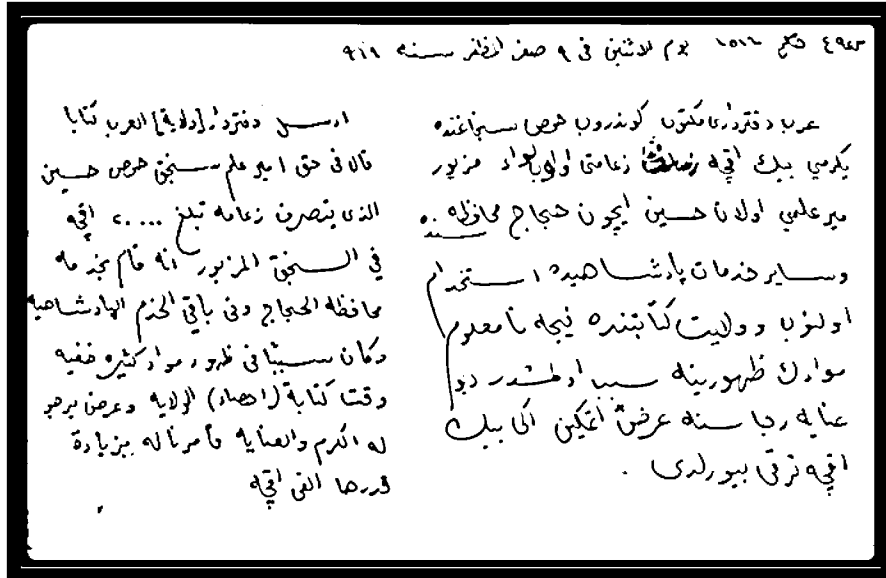 ٤٩٤٣ حكم ١٥١٦ يوم الاثنين فى ٩ صفر المظفر سنه ٩٦٩
عرب دفتردارى مكتوب كوندروب حمص سنجاغنده
يكرمي بيك اقچه زعامتى اولوب لواء مزبور
مير علمي اولان حسين ايچون حجاج محافظه سنده
وساير خدمات پادشاهيده استخدام
اولنوب وولايت كتابتنده نيجه نامعلوم
موادك ظهورينه سبب اولمشدر ديو
عنايه رجاسنه عرض اتمكين اكى بيك
اقچه ترقى بيورلدى .
ارسل دفتردار [ولاية] العرب كتابا
قال فى حق امير علم سنجق حمص حسين
الذى يتصرف زعامه تبلغ ٢٠٠٠٠ اقچه
في السنجق المزبور انه قام بخدمه
محافظه الحجاج وفى باقي الخدم الپادشاهيه
وكان سببا فى ظهور مواد كثيره خفيه
وقت كتابة (احصاء) الولايه وعرض يرجو
له الكرم والعنايه فأمرنا له بزيادة
قدرها الفى اقچه